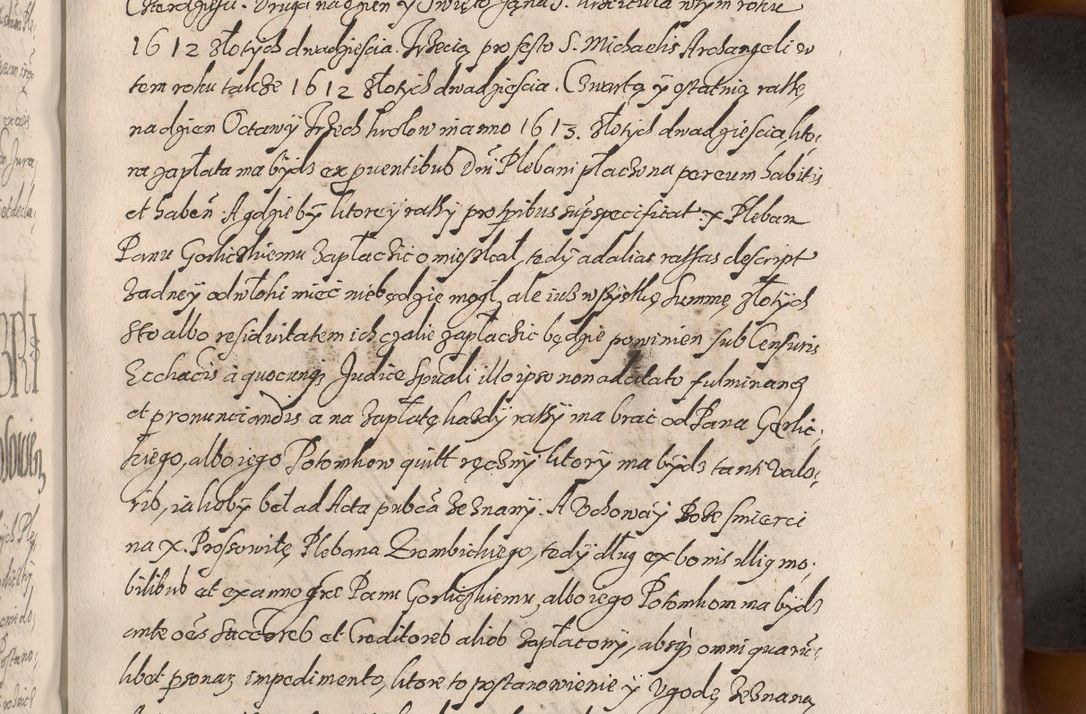 Czterdziesci. Druga na dzien y Swięto Jana S. Krzciciela w tym roku
1612 złotych dwadziescia. Trzecia pro festo S. Michaelis Archangeli w
tem roku takze 1612 złotych dwadziescia. Czwartą y ostatnią ratkę
na dzien Octawy Trzech krolow in anno 1613. złotych dwadziescia, kto-
ra zapłata ma bydz ex puentibus Dni Plebani płaczona per eum habitis
et haben. A gdzie by ktorey ratky pro tpibus sup specificat. X Pleban
Panu Gorliczkiemu zapłacic omieszkał, tedy ad alias rattas descript
zadney odwłoki miec niebędzie mogl, ale iusz wszytkę summę złotych
sto albo residuitatem ich czalie zapłaczic będzie powinien sub Censuris
Eccliacis a quocunq Judice Spuali illo ipso non ad citato fulminand
et pronunciandis a na zapłatę kazdy ratky ma brac od Pana Gorlic-
kiego, albo iego Potomkow quitt ręczny ktory ma bydz tanti valo-
ris, iakoby bel ad Acta publca zeznany. A Uchoway Boze smierci
na X. Prosowitę Plebana Zrombickiego, tedy dług ex bonis illig mo-
bilibus et ex anno grae Panu Gorliczkiemu, albo iego Potomkom ma bydz
ante oes Succores et Creditores alios zapłacony, absq omni quaru-
libet psonar impedimento, ktore to postanowienie y Ugodę zeznaną